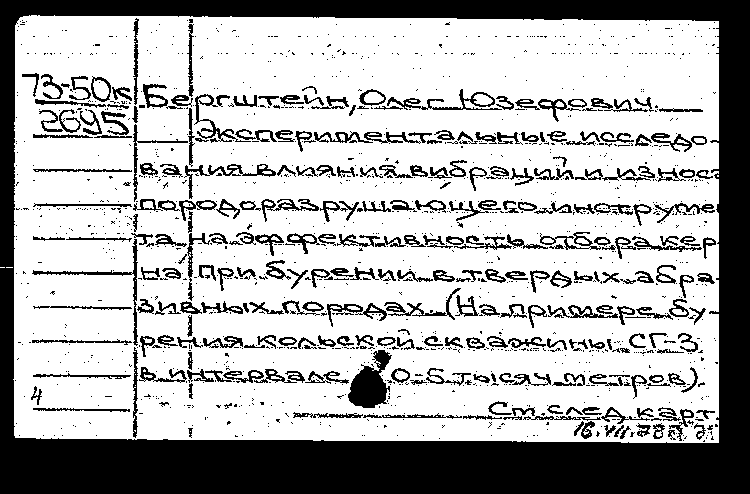 73-50к Бергштейн, Олег Юзефович.
2695 Экспериментальные исследо-
вания влияния вибраций и износа
породоразрушающего инструмен
та на эффективность отбора кер-
на при бурении в твердых абра-
зивных породах. (На примере бу-
рения кольской скважины СГ-3
в интервале 0-5 тысяч метров).
4
См. след. карт.
16.VII.78